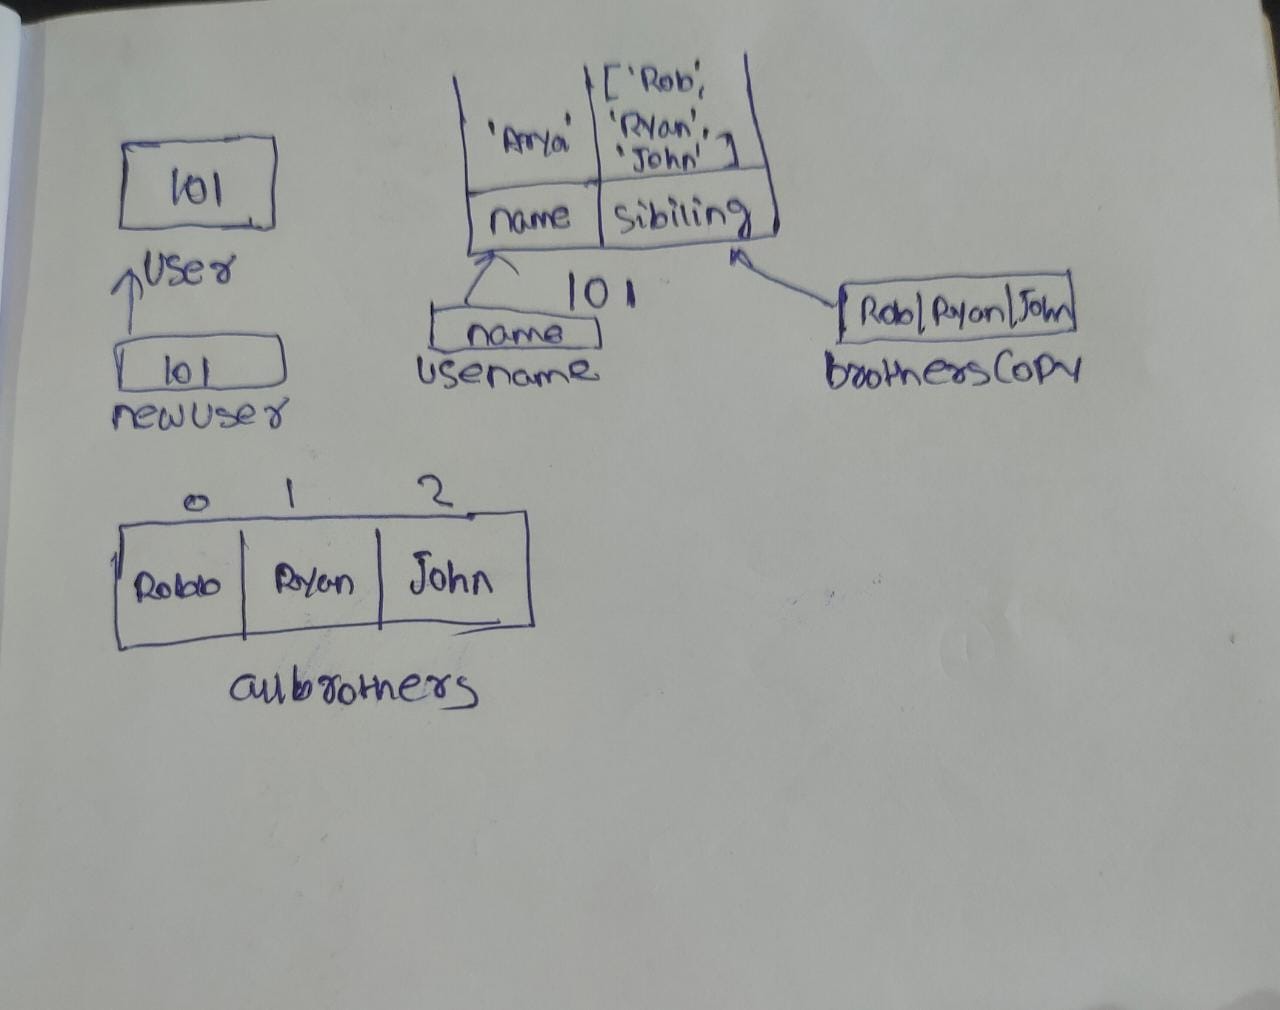 101
user
101
newuser
'Arya'
['Rob',
'Ryan',
'John']
name
sibiling
101
name
usename
Rob|Ryan|John
brothersCopy
0 1 2
Robb Ryan John
allbrothers